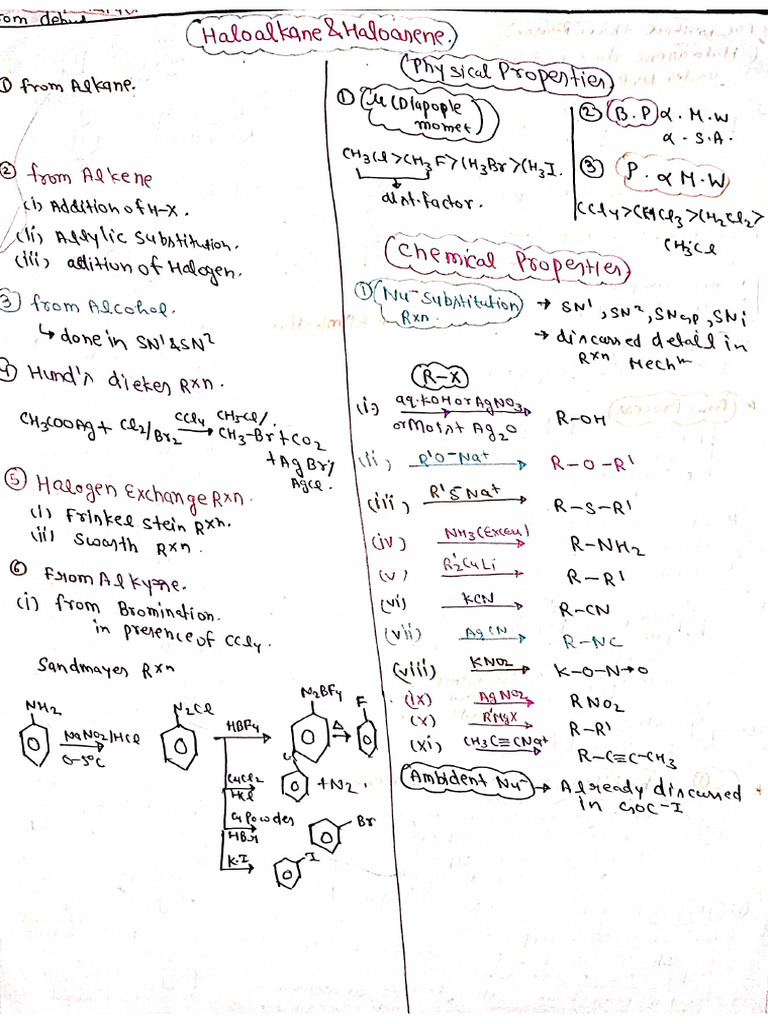 Haloalkane & Haloarene.
① from Alkane.
② from Alkene
(i) Addition of H-X.
(ii) Allylic Substitution.
(iii) addition of Halogen.
③ from Alcohol.
↳ done in SN¹ & SN²
Hund's dieker Rxn.
CH₃COOAg + Cl₂/Br₂ →(CCl₄) CH₃Cl/CH₃-Br + CO₂
+ AgBr/
AgCl.
⑤ Halogen Exchange Rxn.
(i) Frinkel stein Rxn.
(ii) Swarth Rxn.
⑥ From Alkyne.
(i) from Bromination.
in presence of CCl₄.
Sandmayer Rxn
NH₂
NaNO₂/HCl
0-5°C
N₂Cl
HBF₄
N₂BF₄
Δ
F
CuCl₂
HCl
Cl
+ N₂
Powder
HBr
Br
K.I
I
Physical Properties
① μ (Diapople
momet)
CH₃Cl > CH₃F > CH₃Br > CH₃I.
dist. factor.
② B.P α. M.W
α. S.A.
③ P. α M.W
CCl₄ > CHCl₃ > CH₂Cl₂ >
CH₃Cl
Chemical Properties
① Nu⁻ Substitution
Rxn.
→ SN¹, SN², SNAr, SNi
→ discussed detail in
Rxn Mechⁿ
R-X
(i) aq. KOH or AgNO₃ R-OH
or Moist Ag₂O
(ii) R'O⁻Na⁺ → R-O-R'
(iii) R'SNa⁺ → R-S-R'
(iv) NH₃(Excess) → R-NH₂
(v) R'₂CuLi → R-R'
(vi) KCN → R-CN
(vii) AgCN → R-NC
(viii) KNO₂ → K-O-N→O
(ix) AgNO₂ → RNO₂
(x) R'MgX → R-R'
(xi) CH₃C≡CNa⁺ → R-C≡C-CH₃
Ambident Nu⁻ → Already discussed
in GOC-I